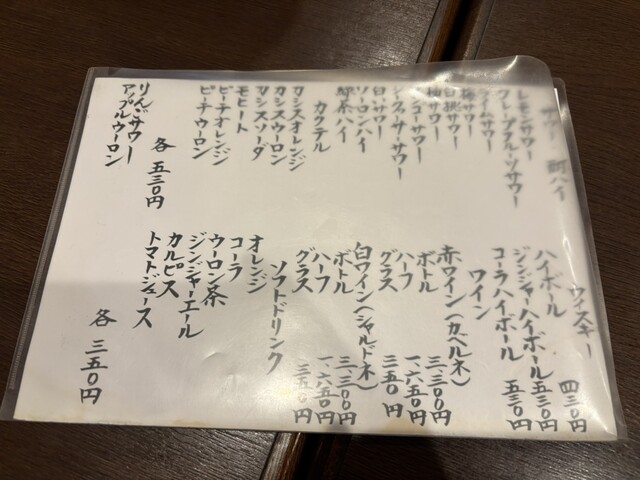 サワー 酎ハイ
レモンサワー
グレープフルーツサワー
ライムサワー
梅サワー
白桃サワー
柚サワー
サワー
白サワー
ウーロンハイ
緑茶ハイ
カクテル
カシスオレンジ
カシスウーロン
カシスソーダ
モヒート
ピーチオレンジ
ピーチウーロン
各 五三〇円
りんごサワー
アップルウーロン
ウィスキー 四三〇円
ハイボール 五三〇円
ジンジャーハイボール
コーラハイボール 五三〇円
ワイン
赤ワイン(カベルネ)
ボトル 三、三〇〇円
ハーフ 一、六五〇円
グラス 三五〇円
白ワイン(シャルドネ)
ボトル 三、三〇〇円
ハーフ 一、六五〇円
グラス 三五〇円
ソフトドリンク
オレンジ
コーラ
ウーロン茶
ジンジャーエール
カルピス
トマトジュース
各 三五〇円